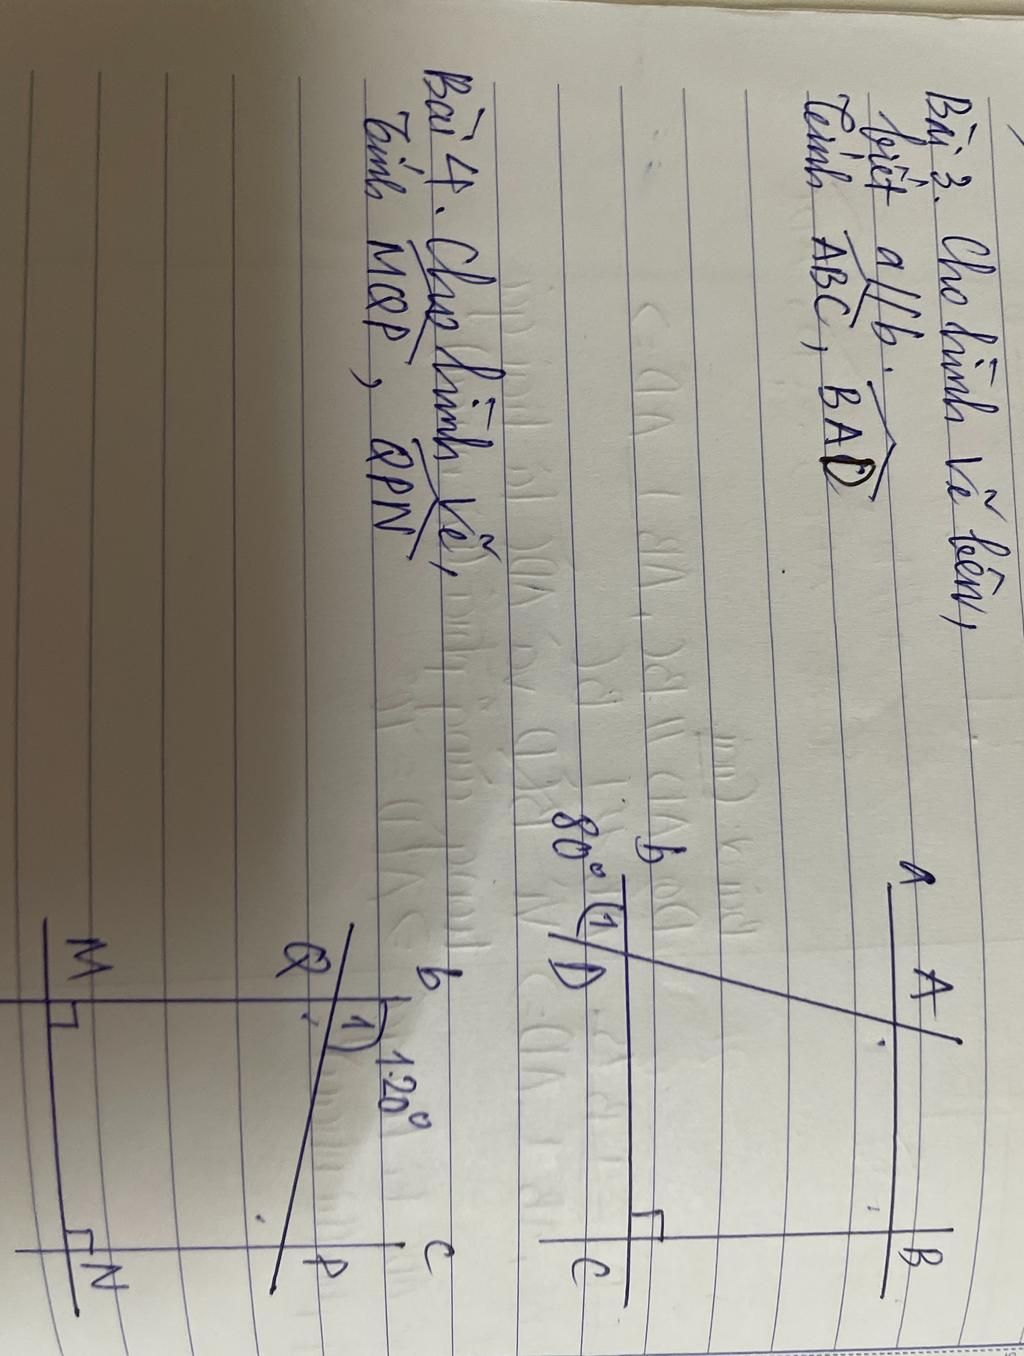 Bài 3. Cho hình vẽ bên,
biết a//b.
Tính ABC, BAD
a
A
B
b
80°
1
D
C
Bài 4. Cho hình vẽ,
Tính MQP, QPN
b
c
1
120°
Q
P
M
N